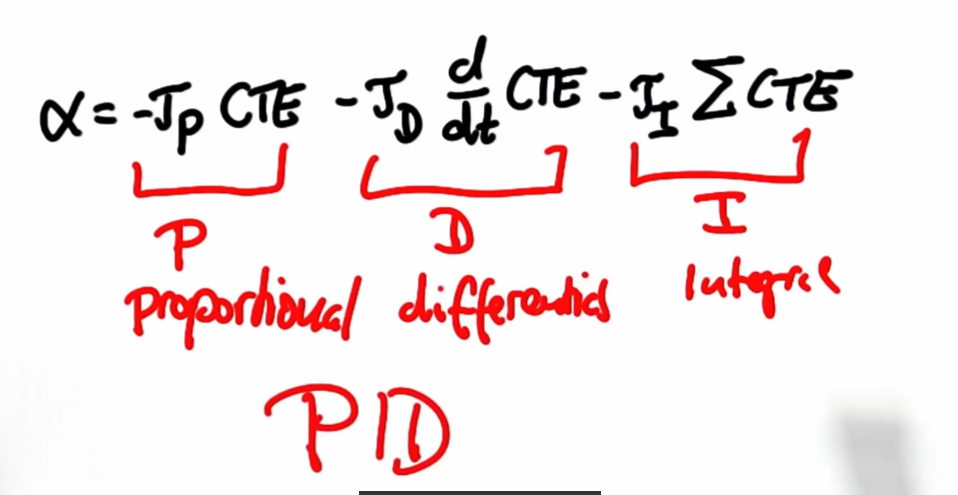 α = -J_P CTE - J_D d/dt CTE - J_I ∑ CTE
P D I
proportional differential Integral
PID